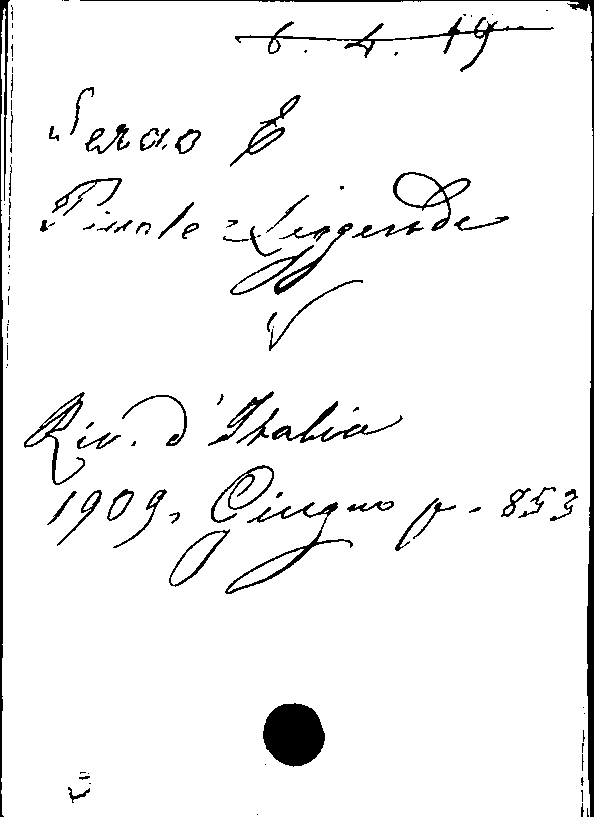 6. 4. 19
Serao E
Leggende
Riv. d'Italia
1909, Giugno p. 853